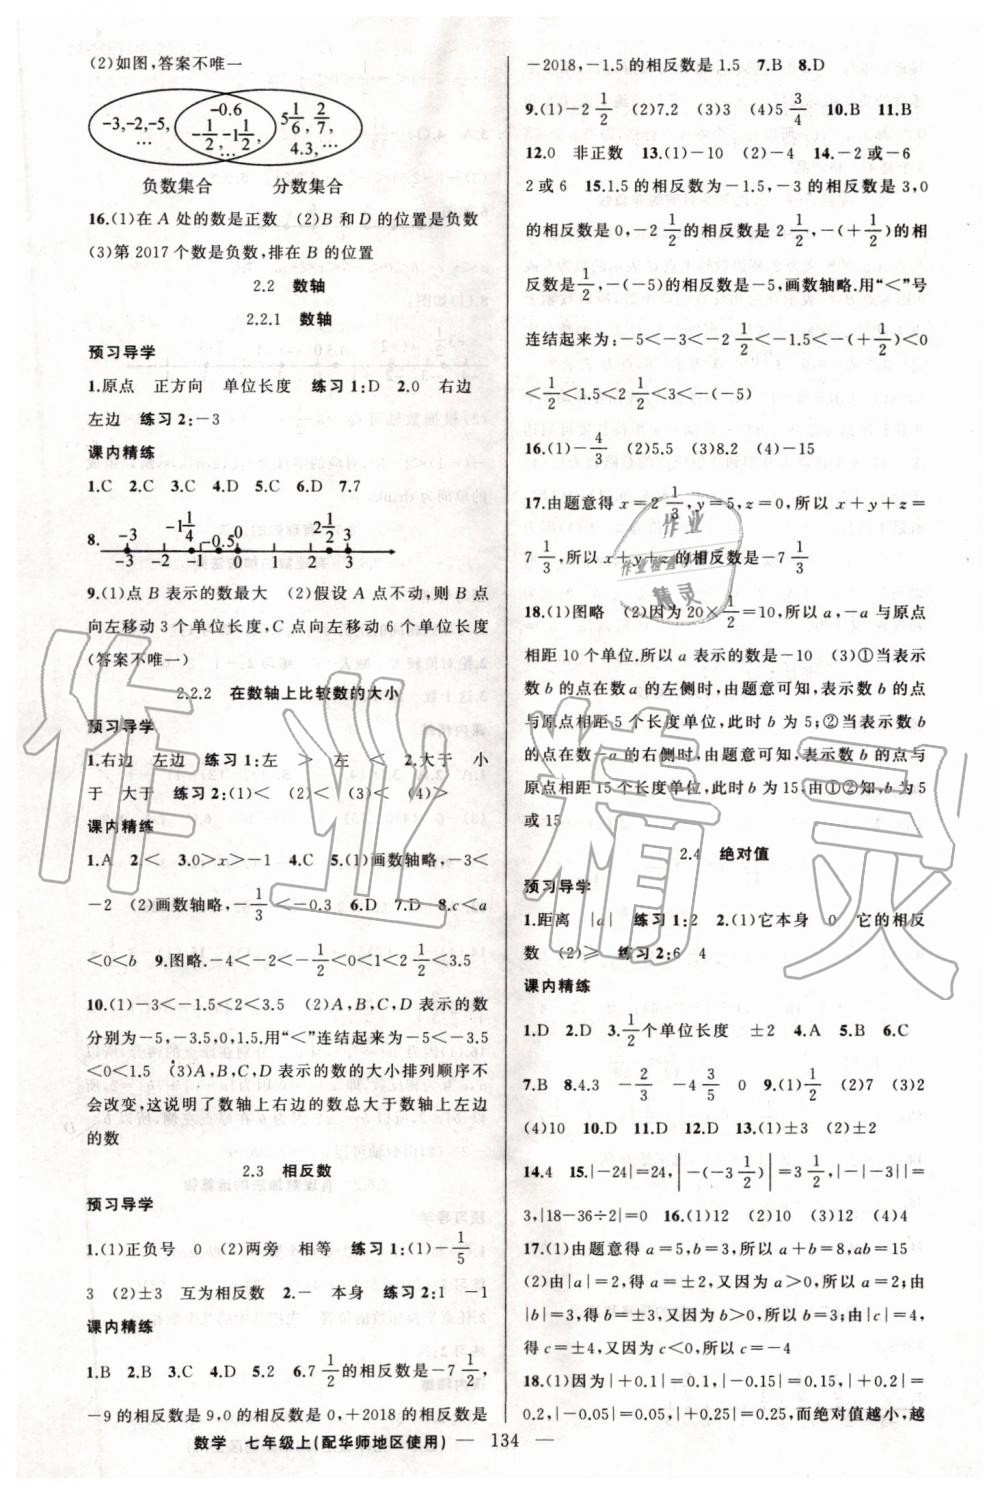 (2)如图,答案不唯一
-3,-2,-5,
…
-0.6
-1/2,-1 1/2,
…
5 1/6, 2/7,
4.3,…
负数集合　分数集合
16.(1)在 A 处的数是正数　(2)B 和 D 的位置是负数
(3)第 2017 个数是负数,排在 B 的位置
2.2　数轴
2.2.1　数轴
预习导学
1.原点　正方向　单位长度　练习 1:D　2.0　右边
左边　练习 2:-3
课内精练
1.C　2.C　3.C　4.D　5.C　6.D　7.7
8. -3　-1 1/4　-0.5　0　2 1/2　3
-3　-2　-1　0　1　2　3
9.(1)点 B 表示的数最大　(2)假设 A 点不动,则 B 点
向左移动 3 个单位长度,C 点向左移动 6 个单位长度
(答案不唯一)
2.2.2　在数轴上比较数的大小
预习导学
1.右边　左边　练习 1:左　>　左　<　2.大于　小
于　大于　练习 2:(1)<　(2)<　(3)<　(4)>
课内精练
1.A　2.<　3.0>x>-1　4.C　5.(1)画数轴略,-3<
-2　(2)画数轴略,-1/3<-0.3　6.D　7.D　8.c<a
<0<b　9.图略.-4<-2<-1/2<0<1<2 1/2<3.5
10.(1)-3<-1.5<2<3.5　(2)A,B,C,D 表示的数
分别为-5,-3.5,0,1.5.用“<”连结起来为-5<-3.5
<0<1.5　(3)A,B,C,D 表示的数的大小排列顺序不
会改变,这说明了数轴上右边的数总大于数轴上左边
的数
2.3　相反数
预习导学
1.(1)正负号　0　(2)两旁　相等　练习 1:(1)-1/5
3　(2)±3　互为相反数　2.-　本身　练习 2:1　-1
课内精练
1.B　2.B　3.C　4.D　5.2　6.7 1/2的相反数是-7 1/2,
-9 的相反数是 9,0 的相反数是 0,+2018 的相反数是
-2018,-1.5 的相反数是 1.5　7.B　8.D
9.(1)-2 1/2　(2)7.2　(3)3　(4)5 3/4　10.B　11.B
12.0　非正数　13.(1)-10　(2)-4　14.-2或-6
2或6　15.1.5 的相反数为-1.5,-3 的相反数是 3,0
的相反数是 0,-2 1/2的相反数是 2 1/2,-(+1/2)的相
反数是1/2,-(-5)的相反数是-5,画数轴略.用“<”号
连结起来为:-5<-3<-2 1/2<-1.5<-(+1/2)<0
<1/2<1.5<2 1/2<3<-(-5)
16.(1)-4/3　(2)5.5　(3)8.2　(4)-15
17.由题意得 x=2 1/3,y=5,z=0,所以 x+y+z=
7 1/3,所以 x+y+z 的相反数是-7 1/3
18.(1)图略　(2)因为 20×1/2=10,所以 a,-a 与原点
相距 10 个单位.所以 a 表示的数是-10　(3)①当表示
数 b 的点在数 a 的左侧时,由题意可知,表示数 b 的点
与原点相距 5 个长度单位,此时 b 为 5;②当表示数 b
的点在数 a 的右侧时,由题意可知,表示数 b 的点与
原点相距 15 个长度单位,此时 b 为 15.由①②知,b 为 5
或 15
2.4　绝对值
预习导学
1.距离　|a|　练习 1:2　2.(1)它本身　0　它的相反
数　(2)≥　练习 2:6　4
课内精练
1.D　2.D　3.1/2个单位长度　±2　4.A　5.B　6.C
7.B　8.4.3　-2/3　-4 3/5　0　9.(1)12　(2)7　(3)2
(4)10　10.D　11.D　12.D　13.(1)±3　(2)±2
14.4　15.|-24|=24,|-(-3 1/2)|=3 1/2,|-3|=
3,|18-36÷2|=0　16.(1)12　(2)10　(3)12　(4)4
17.(1)由题意得 a=5,b=3,所以 a+b=8,ab=15
(2)由|a|=2,得 a=±2,又因为 a>0,所以 a=2;由
|b|=3,得 b=±3,又因为 b>0,所以 b=3;由|c|=4,
得 c=±4,又因为 c<0,所以 c=-4
18.(1)因为|+0.1|=0.1,|-0.15|=0.15,|+0.2|=
0.2,|-0.05|=0.05,|+0.25|=0.25,而绝对值越小,越
数学　七年级上(配华师地区使用) — 134 —
作业精灵